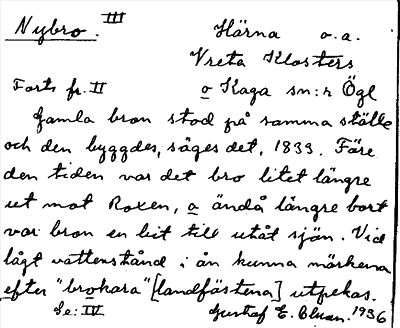 Nybro. III
Härna o.a.
Vreta Klosters
Forts fr. II
o Kaga sn:r Ögl
Gamla bron stod på samma ställe
och den byggdes, säges det, 1833. Före
den tiden var det bro litet längre
ut mot Roxen, o ändå längre bort
var bron en bit till utåt sjön. Vid
lågt vattenstånd i ån kunna märkena
efter "brokara" [landfästena] utpekas.
Se: IV
Gustaf E. 1936